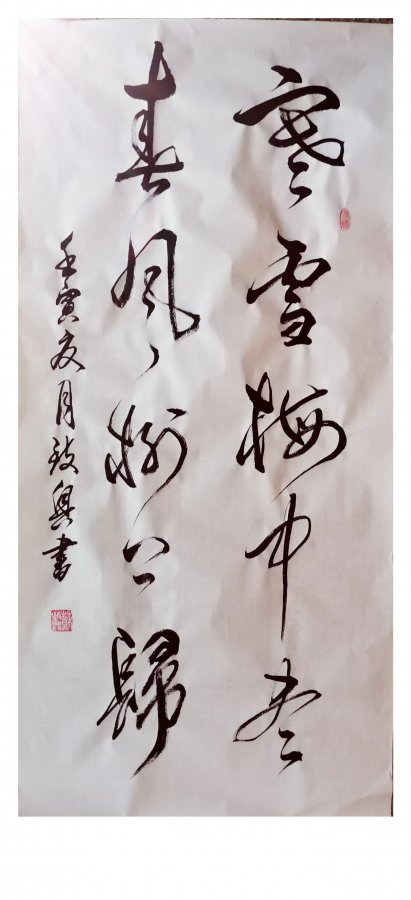 寒雪梅中尽
春风柳上歸
壬寅夏月致興書